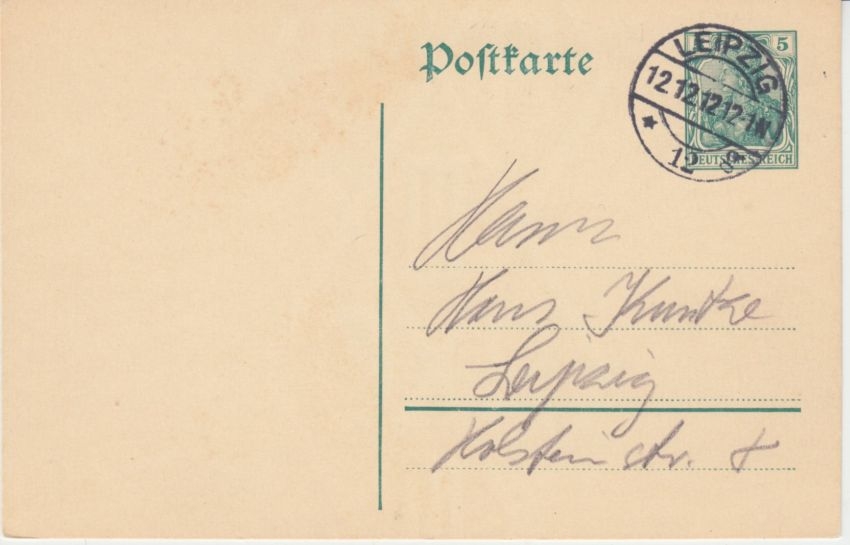 Postkarte
5
DEUTSCHES REICH
LEIPZIG
12.12.12.12-1N
* 12 8
Herrn
Hans Kuntze
Leipzig
Holsteinstr. 8